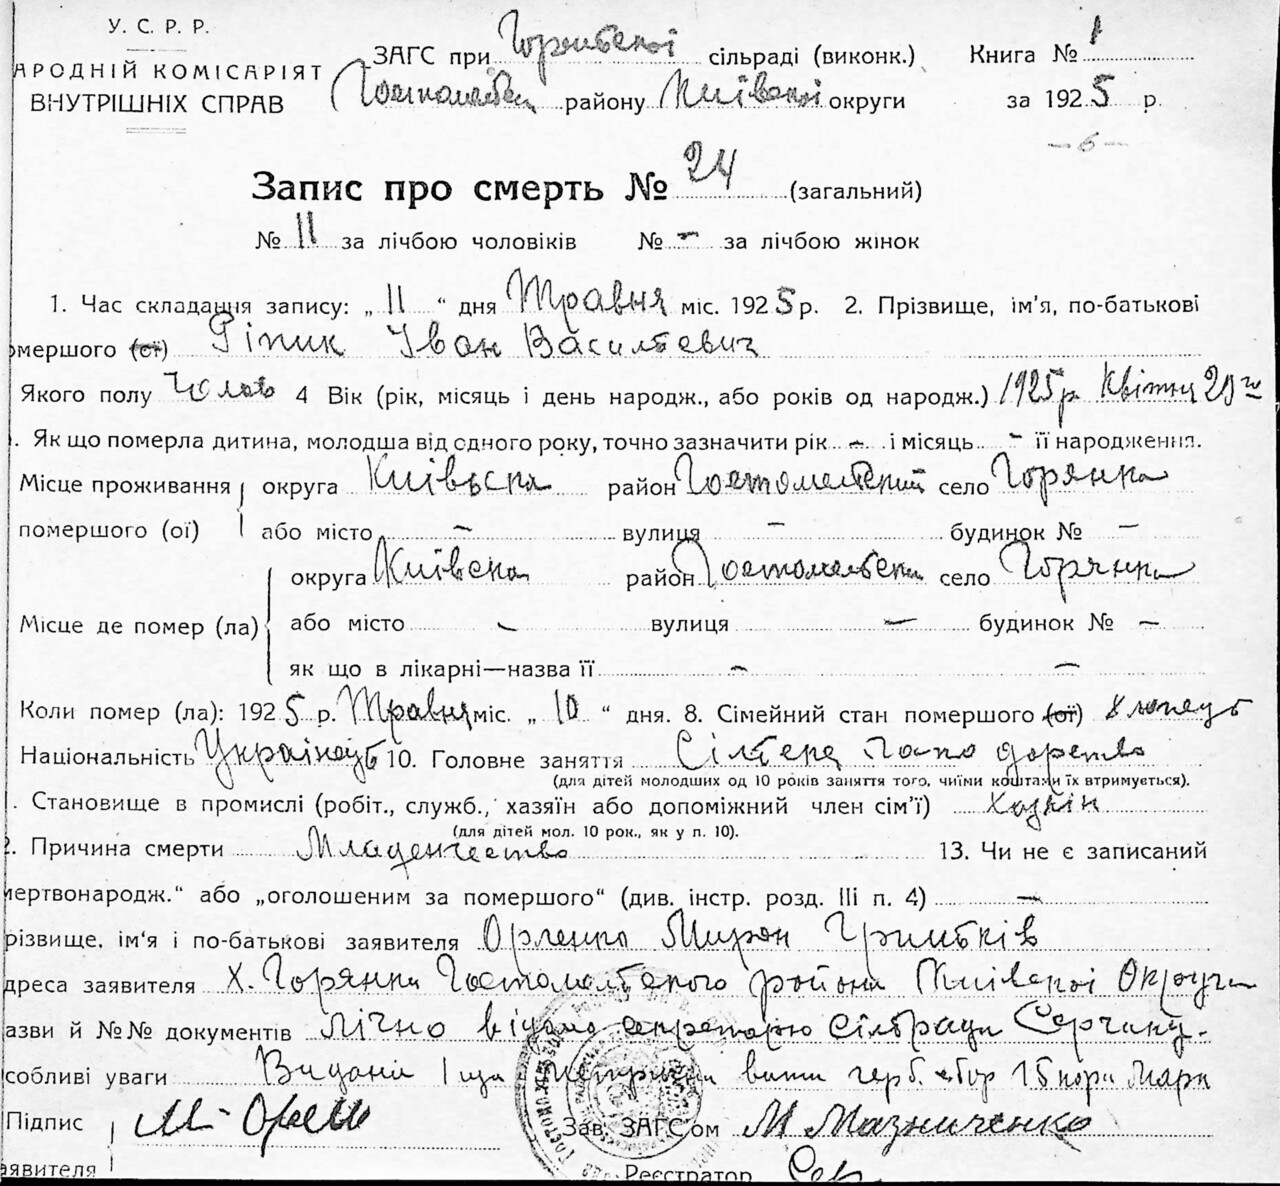 У. С. Р. Р.
АРОДНІЙ КОМІСАРІЯТ
ВНУТРІШНІХ СПРАВ
ЗАГС при сільраді (виконк.)
району Київської округи
Книга № 1
за 1925 р.
– 6 –
Запис про смерть № 24 (загальний)
№ 11 за лічбою чоловіків № – за лічбою жінок
1. Час складання запису: „ 11 “ дня Травня міс. 1925 р. 2. Прізвище, ім'я, по-батькові
омершого (ої) Ріпик Іван Васильевич
Якого полу Чолов 4 Вік (рік, місяць і день народж., або років од народж.) 1925 р Квітня 29го
. Як що померла дитина, молодша від одного року, точно зазначити рік – і місяць – її народження.
Місце проживання помершого (ої) округа Київська район Гостомельський село Горянка
або місто – вулиця – будинок № –
Місце де помер (ла) округа Київска район Гостомельски село Горянка
або місто – вулиця – будинок № –
як що в лікарні—назва її – –
Коли помер (ла): 1925 р. Травня міс. „ 10 “ дня. 8. Сімейний стан помершого (ої)
Національність Українець 10. Головне заняття Сільске господарство
(для дітей молодших од 10 років заняття того, чиїми коштами їх втримується).
. Становище в промислі (робіт., служб., хазяїн або допоміжний член сім'ї) Хазяін
(для дітей мол. 10 рок., як у п. 10).
2. Причина смерти Младенчество 13. Чи не є записаний
мертвонародж.“ або „оголошеним за помершого“ (див. інстр. розд. III п. 4) –
різвище, ім'я і по-батькові заявителя Орленко Мирон
дреса заявителя Х. Горянка Гостомельского району Київської Округи
азви й №№ документів лічно відомо секретарю сільради
собливі уваги Видана
Підпис
аявителя
Зав. ЗАГС'ом М Мазниченко
Реєстратор